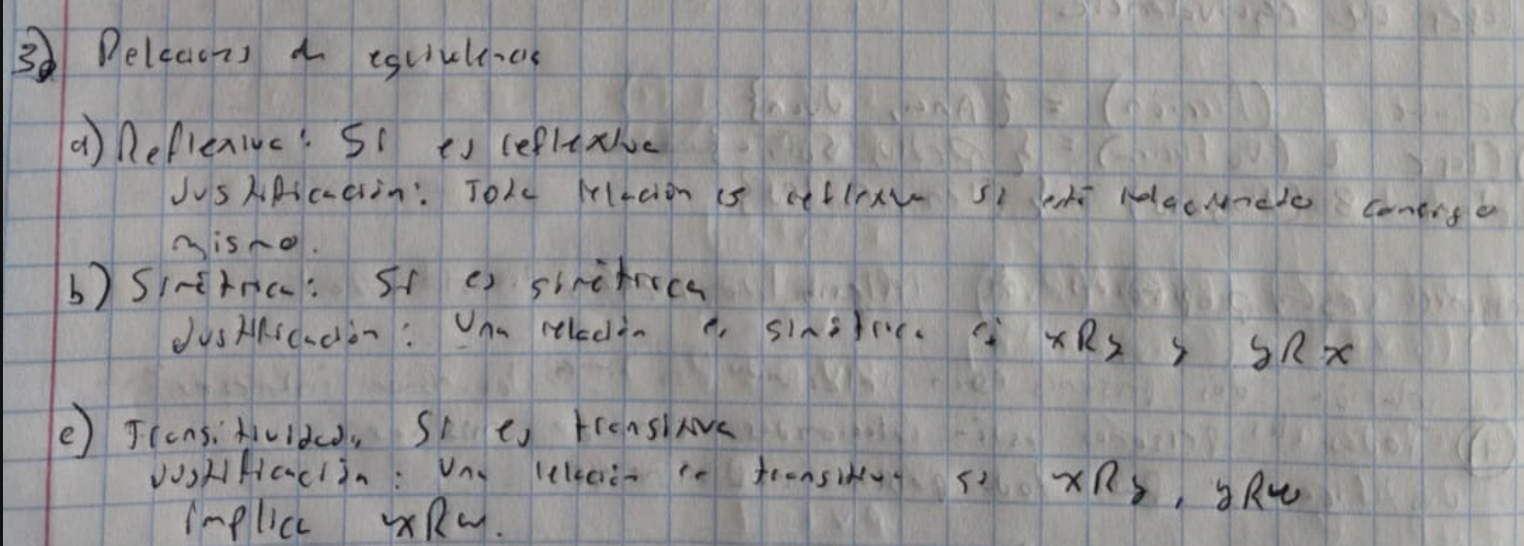 3) Relaciones de equivalencia
a) Reflexiva: SI es reflexiva
Justificación: Toda relación es reflexiva si está relacionado consigo
mismo.
b) Simétrica: SI es simétrica
Justificación: Una relación es simétrica si xRy y yRx
c) Transitividad, SI es transitiva
Justificación: Una relación es transitiva si xRy, yRw
implica xRw.